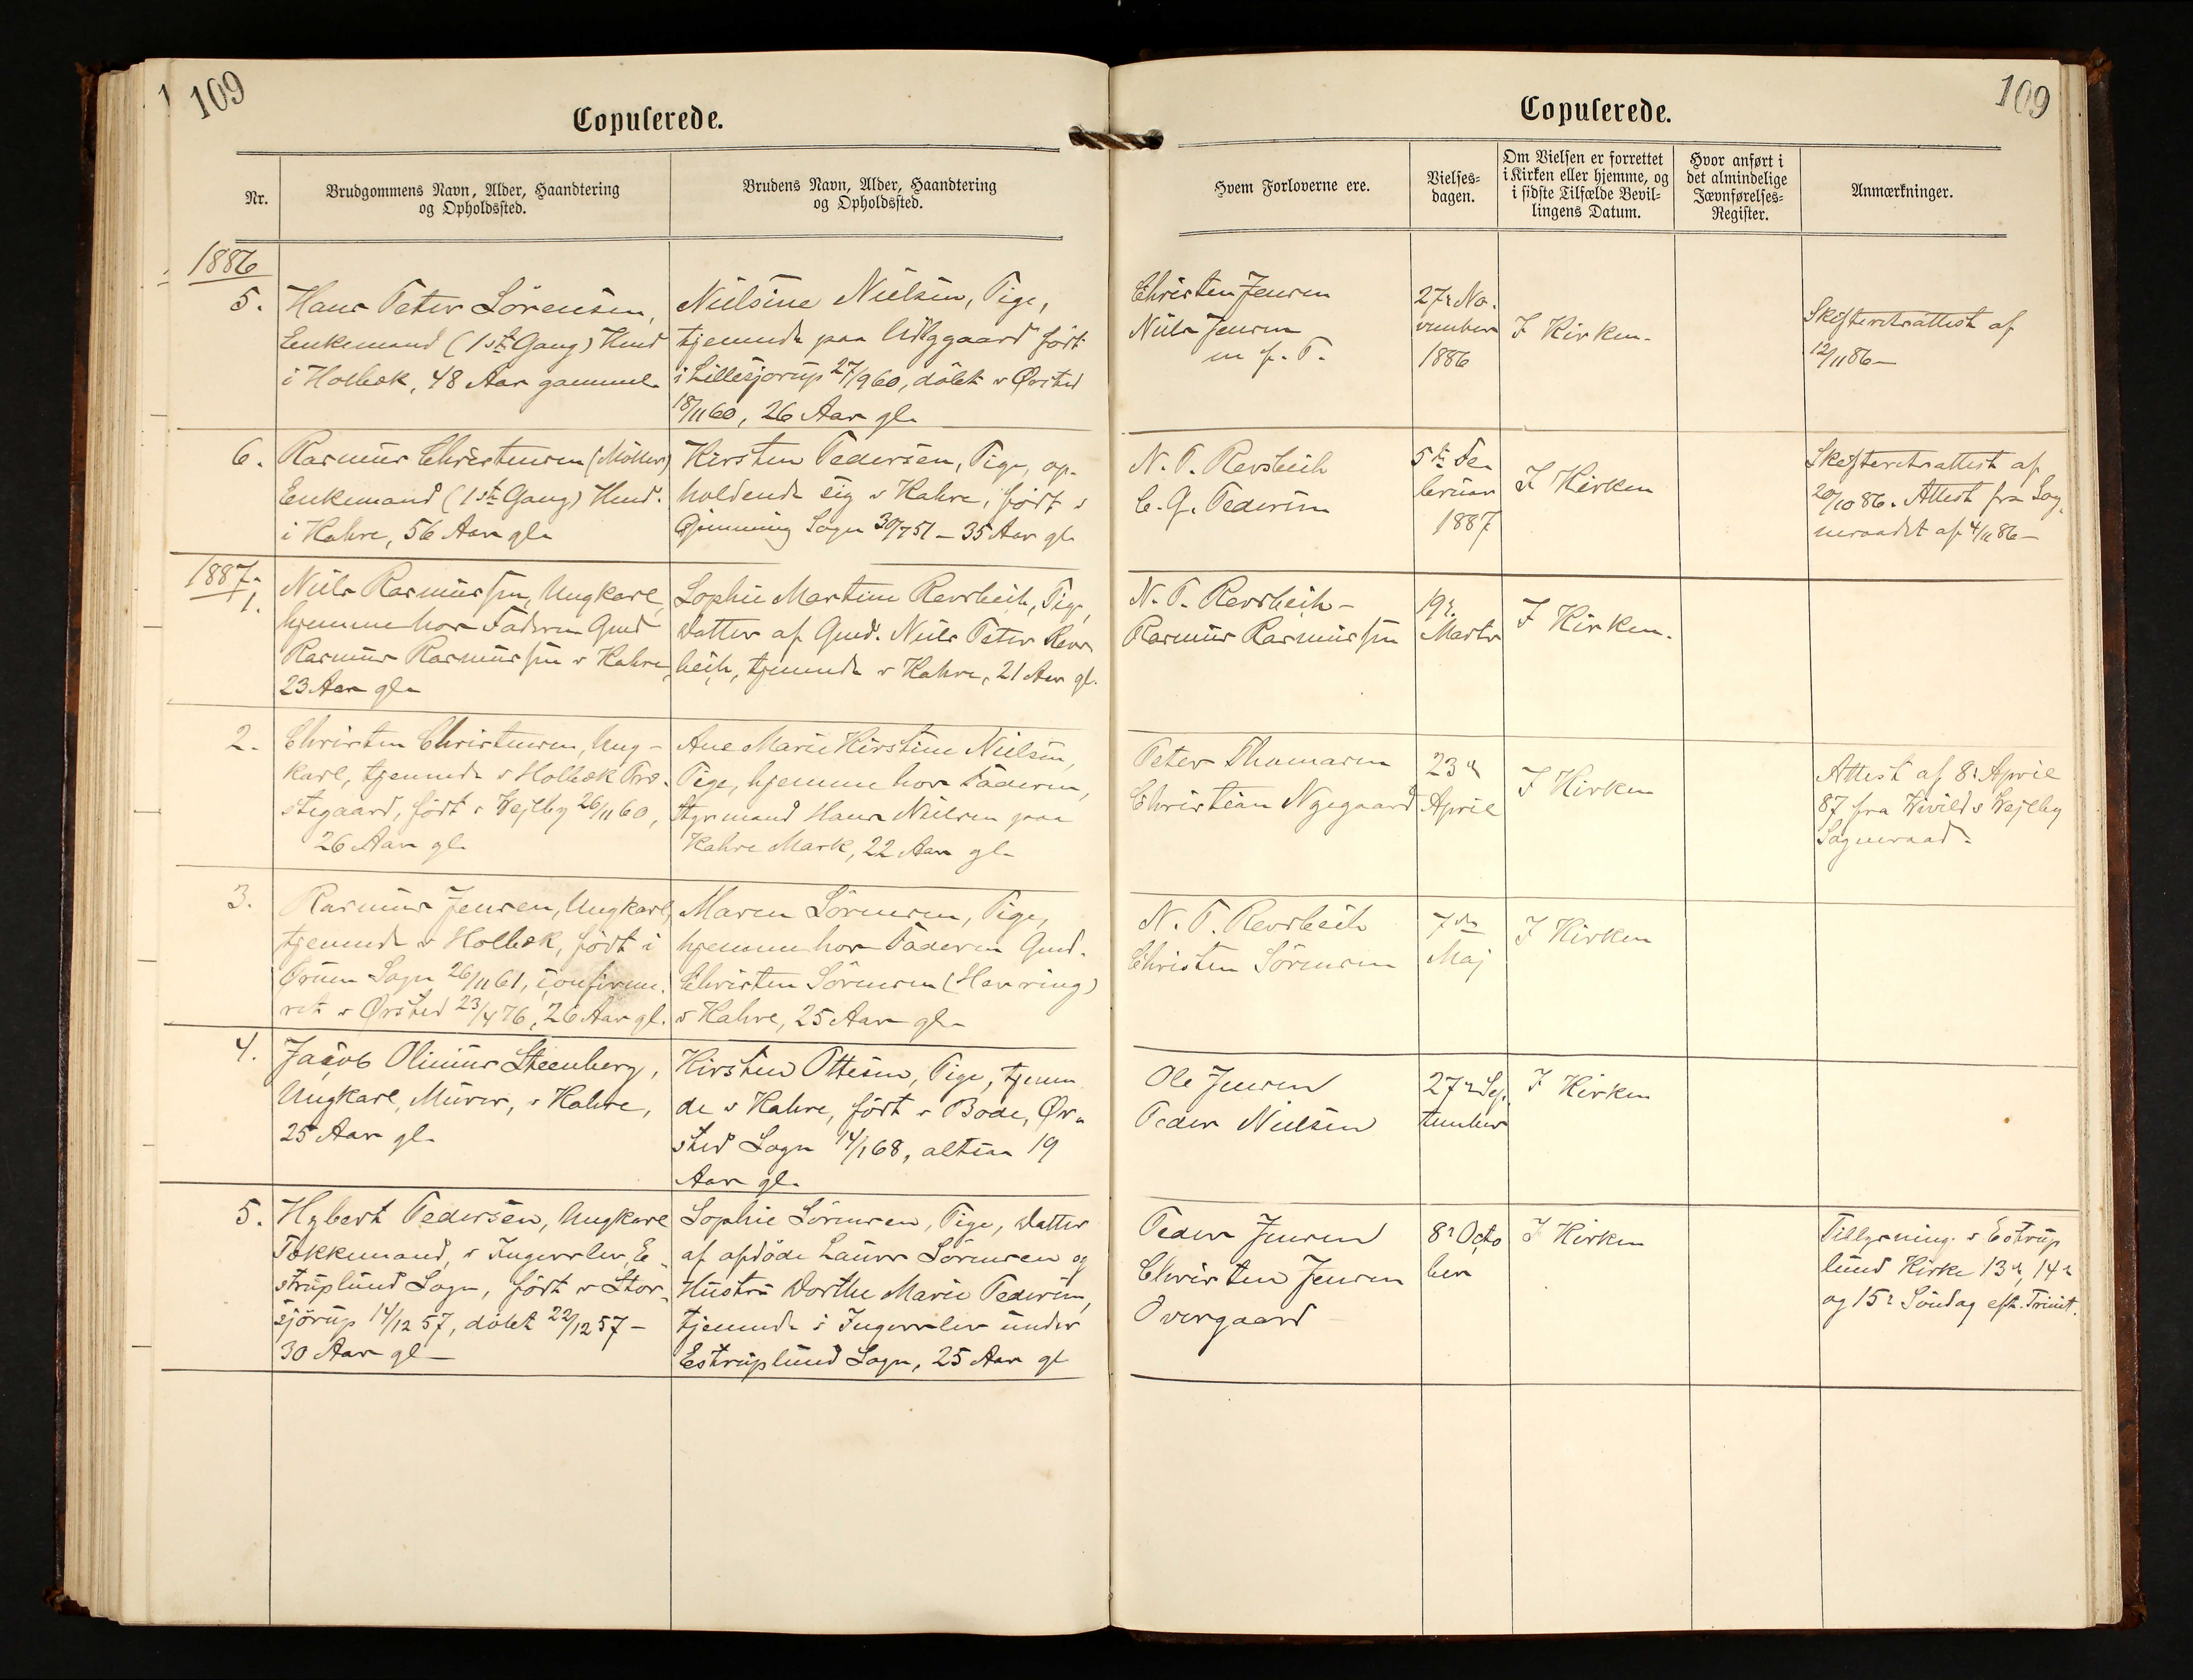 109
Copulerede.
Nr.
Brudgommens Navn, Alder, Haandtering
og Opholdssted.
Brudens Navn, Alder, Haandtering
og Opholdssted.
1886
5.
Hans Peter Sørensen,
Enkemand (1ste Gang) Huusmd
i Holbæk, 48 Aar gammel.
Nielsine Nielsen, Pige,
tjenende paa født
i Lillesjørup 27/9 60, døbt i Ørsted
18/11 60, 26 Aar gl.
6.
Rasmus Christensen (Møller)
Enkemand (1ste Gang) Huusmd.
i Kahre, 56 Aar gl.
Kirsten Pedersen, Pige, op-
holdende sig i Kahre, født i
Gjimming Sogn 30/7 51 - 35 Aar gl.
1887.
1.
Niels Rasmussen, Ungkarl,
hjemme hos Faderen Gmd
Rasmus Rasmussen i Kahre,
23 Aar gl.
Sophie Martine Revsbeih, Pige,
Datter af Gmd. Niels Peter Revs-
beih, tjenende i Kahre, 21 Aar gl.
2.
Christen Christensen, Ung-
karl, tjenende i Holbæk Præ-
stegaard, født i Vejlby 26/11 60,
26 Aar gl.
Ane Marie Kirstine Nielsen,
Pige, hjemme hos Faderen,
Hans Nielsen paa
Kahre Mark, 22 Aar gl.
3.
Rasmus Jensen, Ungkarl,
tjenende i Holbæk, født i
Ørum Sogn 26/11 61, confirme-
ret i Ørsted 23/4 76, 26 Aar gl.
Maren Sørensen, Pige,
hjemme hos Faderen Gmd.
Christen Sørensen (Havring)
i Kahre, 25 Aar gl.
4.
Jacob Olinius Steenberg,
Ungkarl, Murer, i Kahre,
25 Aar gl.
Kirsten Ottesen, Pige, tjenen
de i Kahre, født i Bode, Ør-
sted Sogn 14/1 68, altsaa 19
Aar gl.
5.
Hybert Pedersen, Ungkarl
i Ingerslev, E-
struplund Sogn, født i Stor-
sjørup 14/12 57, døbt 22/12 57 -
30 Aar gl -
Sophie Sørensen, Pige, Datter
af afdøde Laurs Sørensen og
Hustru Dorthe Marie Pedersen,
tjenende i Ingerslev under
Estruplund Sogn, 25 Aar gl
109
Copulerede.
Hvem Forloverne ere.
Vielses-
dagen.
Om Vielsen er forrettet
i Kirken eller hjemme, og
i sidste Tilfælde Bevil-
lingens Datum.
Hvor anført i
det almindelige
Jævnførelses-
Register.
Anmærkninger.
Christen Jensen
Niels Jensen
m f. T.
27de No-
vember
1886
I Kirken.
Skifteretsattest af
12/11 86 -
N. P. Revsbeih
C. G. Pedersen
5te Fe-
bruar
1887
I Kirken
Skifteretsattest af
20/10 86. Attest fra Sog-
neraadet af 4/11 86 -
N. P. Revsbeih -
Rasmus Rasmussen
19de
Marts
I Kirken.
Peter Thomasen
Christian Nygaard
23de
April
I Kirken
Attest af 8de April
87 fra Vivild & Vejlby
Sogneraad.
N. P. Revsbeih
Christen Sørensen
7de
Maj
I Kirken
Ole Jensen
Peder Nielsen
27de Sep-
tember
I Kirken
Peder Jensen
Christen Jensen
Overgaard
8de Octo
ber
I Kirken
Tillysning i Estrup
lund Kirke 13de, 14de
og 15de Søndag eft. Trinit.